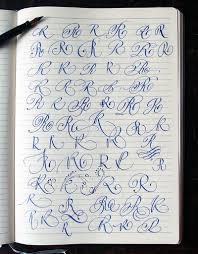 R R R R R R
R R R R R R
R R R R R R
R R R R R R
R R R R R R
R R R R R
R R R R R R
R R R R R
R R R R R
R R R R R
R R R R R